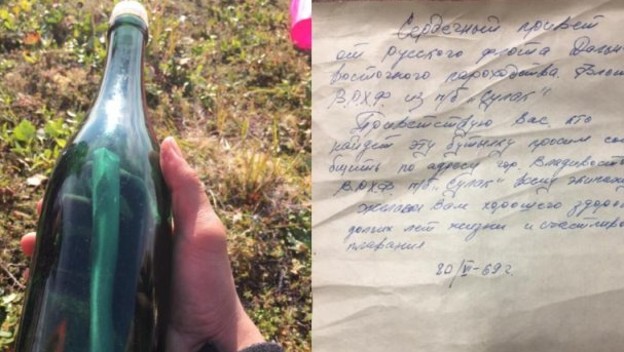 Сердечный привет
от русского флота Дальне
восточного пароходства.
ВРХФ из п/б „Сулак“!
Приветствую Вас, кто
найдет эту бутылку просим соо
бщить по адресу гор. Владивосто
ВРХФ п/б „Сулак“ всему экипажу
желаем Вам хорошего здоро
долгих лет жизни и счастливо
плавания
20/VI-69г.